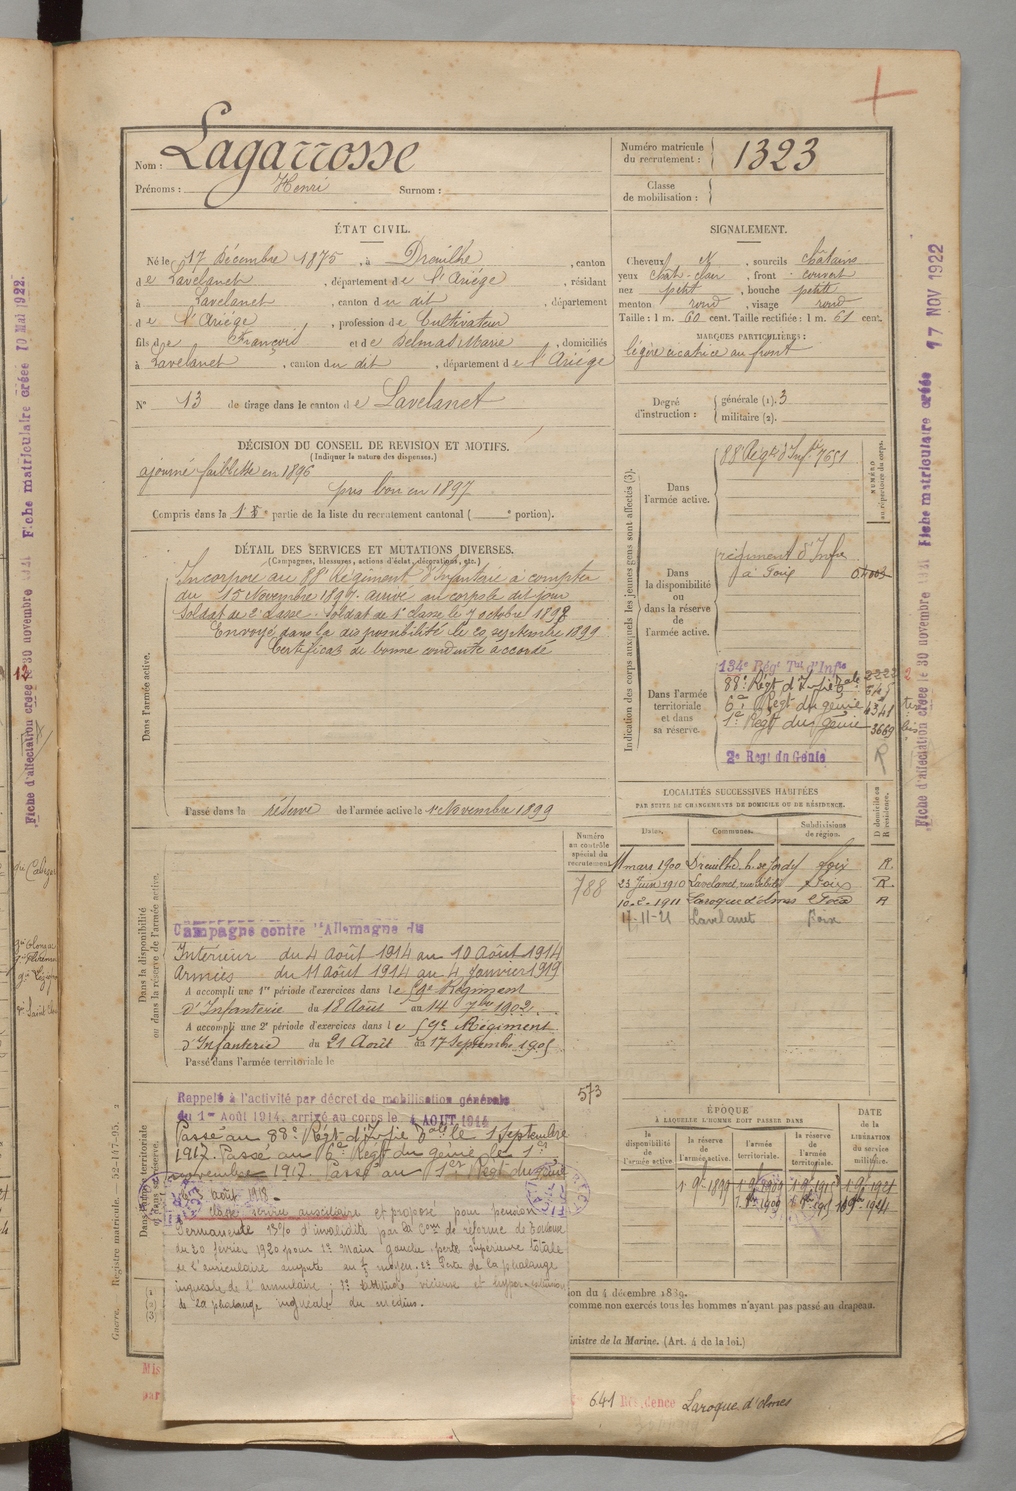 Nom : Lagarrosse
Prénoms : Henri Surnom :
Numéro matricule du recrutement : 1323
Classe de mobilisation :
ÉTAT CIVIL.
Né le 17 Décembre 1875, à Dreuilhe, canton
de Lavelanet, département de l'Ariége, résidant
à Lavelanet, canton du dit, département
de l'Ariége, profession de Cultivateur
fils de François et de Delmas Marie, domiciliés
à Lavelanet, canton du dit, département de l'Ariége
N° 13 de tirage dans le canton de Lavelanet
DÉCISION DU CONSEIL DE REVISION ET MOTIFS.
(Indiquer la nature des dispenses.)
ajourné faiblesse en 1896
pris bon en 1897
Compris dans la 1e partie de la liste du recrutement cantonal ( e portion).
SIGNALEMENT.
Cheveux , sourcils châtains
yeux chât-clair, front couvert
nez petit, bouche petite
menton rond, visage rond
Taille : 1 m. 60 cent. Taille rectifiée : 1 m. 61 cent.
MARQUES PARTICULIÈRES :
légère cicatrice au front
Degré d'instruction : générale (1). 3
militaire (2).
DÉTAIL DES SERVICES ET MUTATIONS DIVERSES.
(Campagnes, blessures, actions d'éclat, décorations, etc.)
Dans l'armée active.
Incorporé au 88e Régiment d'Infanterie à compter
du 15 Novembre 1897. arrivé au corps le dit jour
Soldat de 2e classe. Soldat de 1e classe le 7 octobre 1898
Envoyé dans la disponibilité le 20 septembre 1899
Certificat de bonne conduite accordé
Passé dans la réserve de l'armée active le 1er Novembre 1899
Indication des corps auxquels les jeunes gens sont affectés (3).
NUMÉRO au répertoire du corps.
Dans l'armée active.
88 Régt d'Infie 7651
Dans la disponibilité ou dans la réserve de l'armée active.
régiment d'Infie
à Foix
Dans l'armée territoriale et dans sa réserve.
134e Régt Tal d'Infie
88e Régt d'Infie
6e Régt du génie
1er Régt du génie 3669
2e Régt du Génie
R
LOCALITÉS SUCCESSIVES HABITÉES
PAR SUITE DE CHANGEMENTS DE DOMICILE OU DE RÉSIDENCE.
Dates. Communes. Subdivisions de région. D domicile ou R résidence.
11 mars 1900 Dreuilhe Foix R.
23 Juin 1910 Lavelanet Foix R.
1911 Laroque d'olmes Foix R
17-11-21 Lavelanet Foix
Numéro au contrôle spécial du recrutement
788
573
Dans la disponibilité ou dans la réserve de l'armée active.
Campagne contre l'Allemagne du
Intérieur du 4 Août 1914 au 10 Août 1914
Armées du 11 Août 1914 au 4 Janvier 1919
A accompli une 1re période d'exercices dans le 59e Régiment
d'Infanterie du 18 Août au 14 7bre 1902.
A accompli une 2e période d'exercices dans le 59e Régiment
d'Infanterie du 21 Août au 17 Septembre 1905
Passé dans l'armée territoriale le
Rappelé à l'activité par décret de mobilisation générale
du 1er Août 1914, arrivé au corps le 4 AOUT 1914
Passé au 88e Régt d'Infie le 1 Septembre
1917. Passé au 6e Régt du génie le 1er
novembre 1917. Passé au 1er Régt du génie
août 1918.
Classé service auxiliaire et proposé pour pension
Permanente 15% d'invalidité par la Com. de réforme de Toulouse
du 20 février 1920 pour 1° main gauche perte supérieure totale
de l'auriculaire amputé au moyen. 2° Perte de la phalange
ungueale de l'annulaire ; 3° attitude vicieuse et hyper-extension
de la phalange ungueale du médius.
ÉPOQUE
À LAQUELLE L'HOMME DOIT PASSER DANS
la disponibilité de l'armée active la réserve de l'armée active. l'armée territoriale. la réserve de l'armée territoriale.
DATE de la LIBÉRATION du service militaire.
1 9bre 1899 1 9bre 1909 1 9bre 1915 1 9bre 1921
ion du 4 décembre 1889.
comme non exercés tous les hommes n'ayant pas passé au drapeau.
inistre de la Marine. (Art. 4 de la loi.)
641 Résidence Laroque d'olmes
Mis
par
Guerre. Registre matricule. 52-147-95.
Fiche d'affectation créée le 30 novembre 1921 Fiche matriculaire créée 10 Mai 1922.
Fiche d'affectation créée le 30 novembre 1921 Fiche matriculaire créée 17 NOV 1922